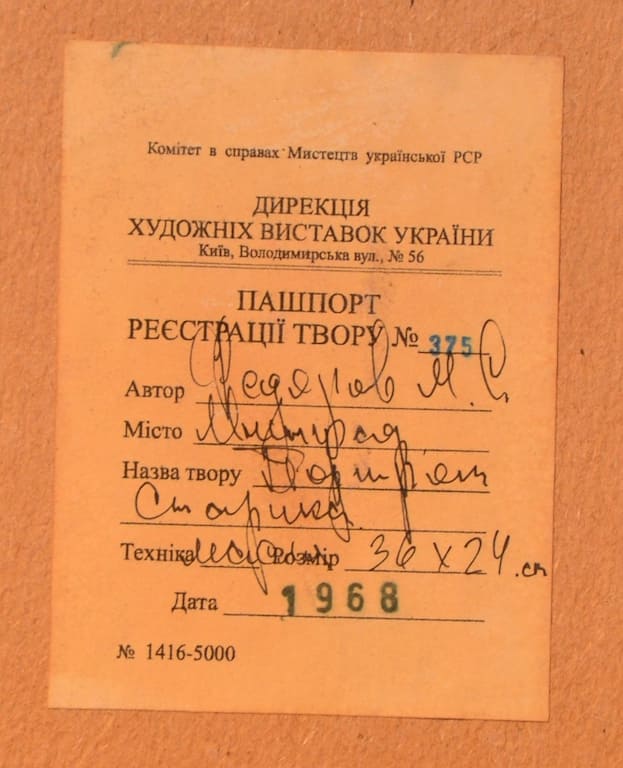 Комітет в справах Мистецтв української РСР
ДИРЕКЦІЯ
ХУДОЖНІХ ВИСТАВОК УКРАЇНИ
Київ, Володимирська вул., № 56
ПАШПОРТ
РЕЄСТРАЦІЇ ТВОРУ № 375
Автор Федяров М. С.
Місто
Назва твору Портрет
Старика
Техніка Розмір 36 х 24 .см
Дата 1968
№ 1416-5000